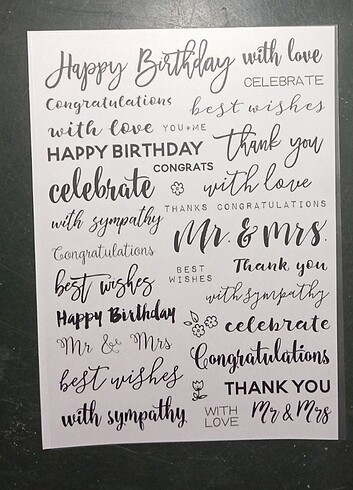 Happy Birthday with love
CELEBRATE
Congratulations
best wishes
with love YOU+ME
thank you
HAPPY BIRTHDAY
CONGRATS
celebrate with love
THANKS CONGRATULATIONS
with sympathy
Mr. & Mrs.
Congratulations
BEST
WISHES
Thank you
best wishes
with sympathy
Happy Birthday
celebrate
Mr & Mrs
Congratulations
best wishes
THANK YOU
with sympathy
WITH
LOVE
Mr & Mrs